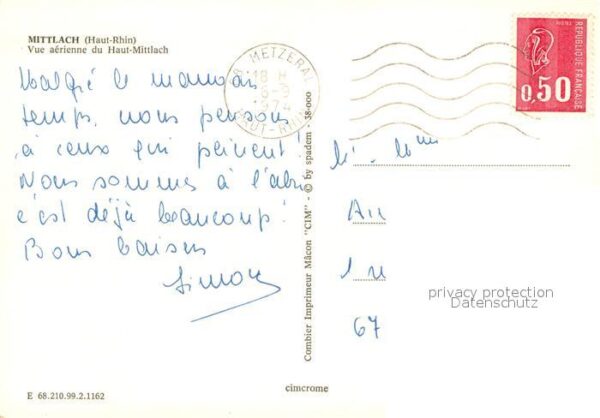 MITTLACH (Haut-Rhin)
Vue aérienne du Haut-Mittlach
Malgré le mauvais
temps, nous pensons
à ceux qui peinent!
Nous sommes à l'abri
c'est déjà beaucoup!
Bons baisers
Simon
Combier Imprimeur Mâcon "CIM" - © by spadem - 38-000
METZERAL
18 H
1974
HAUT-RHIN
REPUBLIQUE FRANÇAISE
0,50
67
privacy protection
Datenschutz
E 68.210.99.2.1162
cimcrome